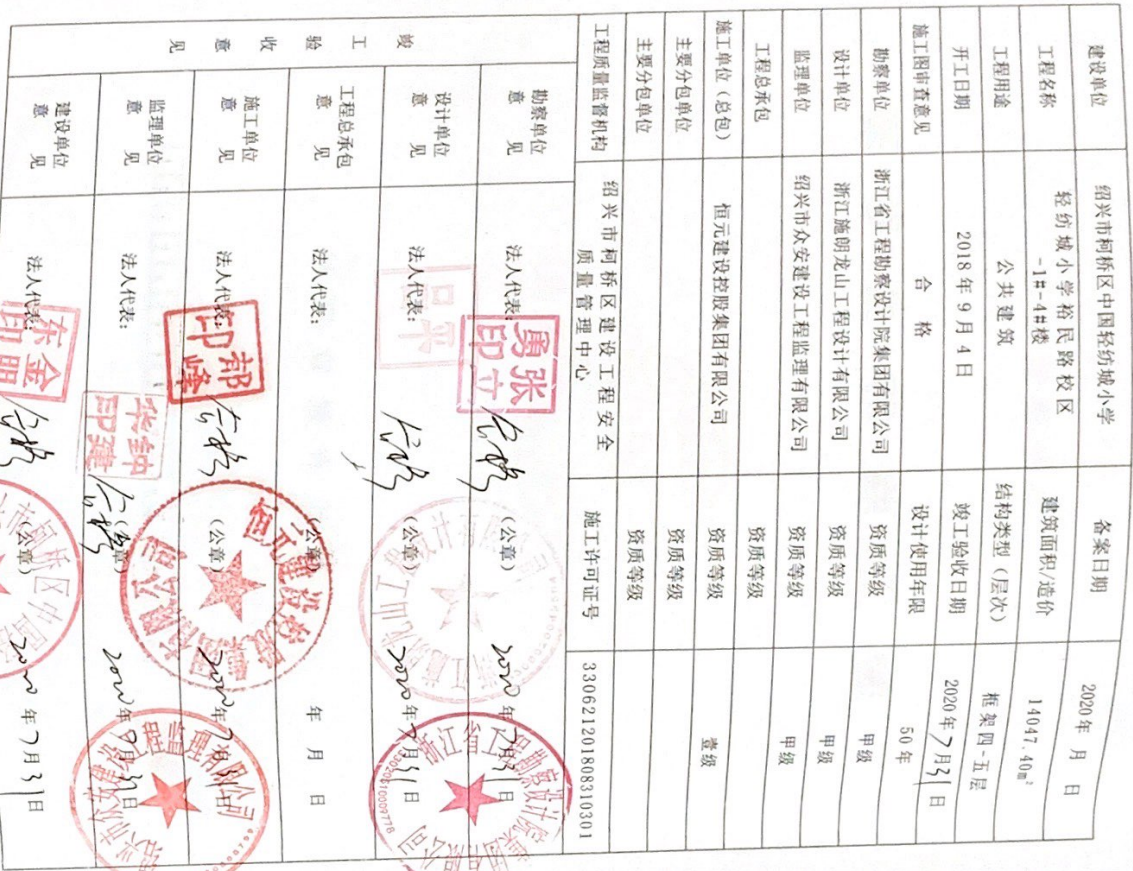 建设单位 绍兴市柯桥区中国轻纺城小学 备案日期 2020年 月 日
工程名称 轻纺城小学裕民路校区
-1#-4#楼 建筑面积/造价 14047.40m²
工程用途 公共建筑 结构类型（层次） 框架四-五层
开工日期 2018年9月4日 竣工验收日期 2020年7月31日
施工图审查意见 合格 设计使用年限 50年
勘察单位 浙江省工程勘察设计院集团有限公司 资质等级 甲级
设计单位 浙江施朗龙山工程设计有限公司 资质等级 甲级
监理单位 绍兴市众安建设工程监理有限公司 资质等级 甲级
工程总承包 资质等级
施工单位（总包） 恒元建设控股集团有限公司 资质等级 壹级
主要分包单位 资质等级
主要分包单位 资质等级
工程质量监督机构 绍兴市柯桥区建设工程安全
质量管理中心 施工许可证号 330621201808310301
竣工验收意见
勘察单位
意见 法人代表： （公章） 2020年7月31日
张立勇印
设计单位
意见 法人代表： （公章） 2020年7月31日
吕平
工程总承包
意见 法人代表： （公章） 年 月 日
施工单位
意见 法人代表： （公章） 2020年7月31日
郝峰印
恒元建设控股集团有限公司
监理单位
意见 法人代表： （公章） 2020年7月31日
钟华建印
建设单位
意见 法人代表： （公章） 2020年7月31日
浙江省工程勘察设计院集团有限公司
绍兴市众安建设工程监理有限公司